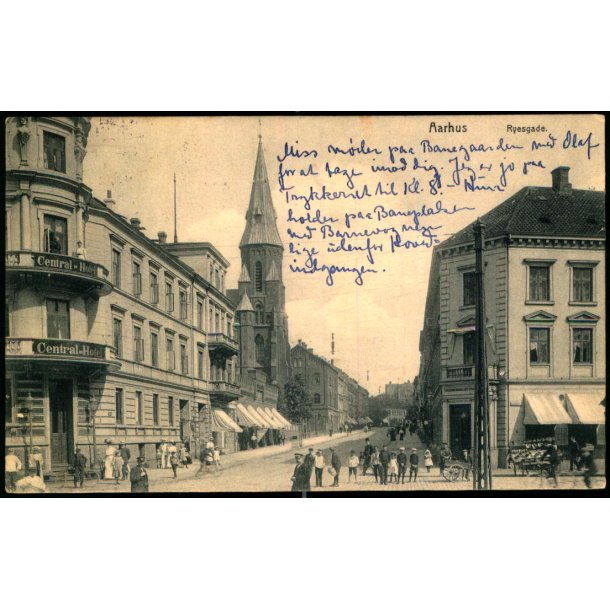 Aarhus Ryesgade.
Miss møder paa Banegaarden med Olaf
for at tage imod dig. Jeg er jo paa
Trykkeriet til Kl. 8. -
holder paa Banepladsen
med Barnevogn
lige udenfor Hoved-
indgangen.
Central-Hotel
Central-Hotel